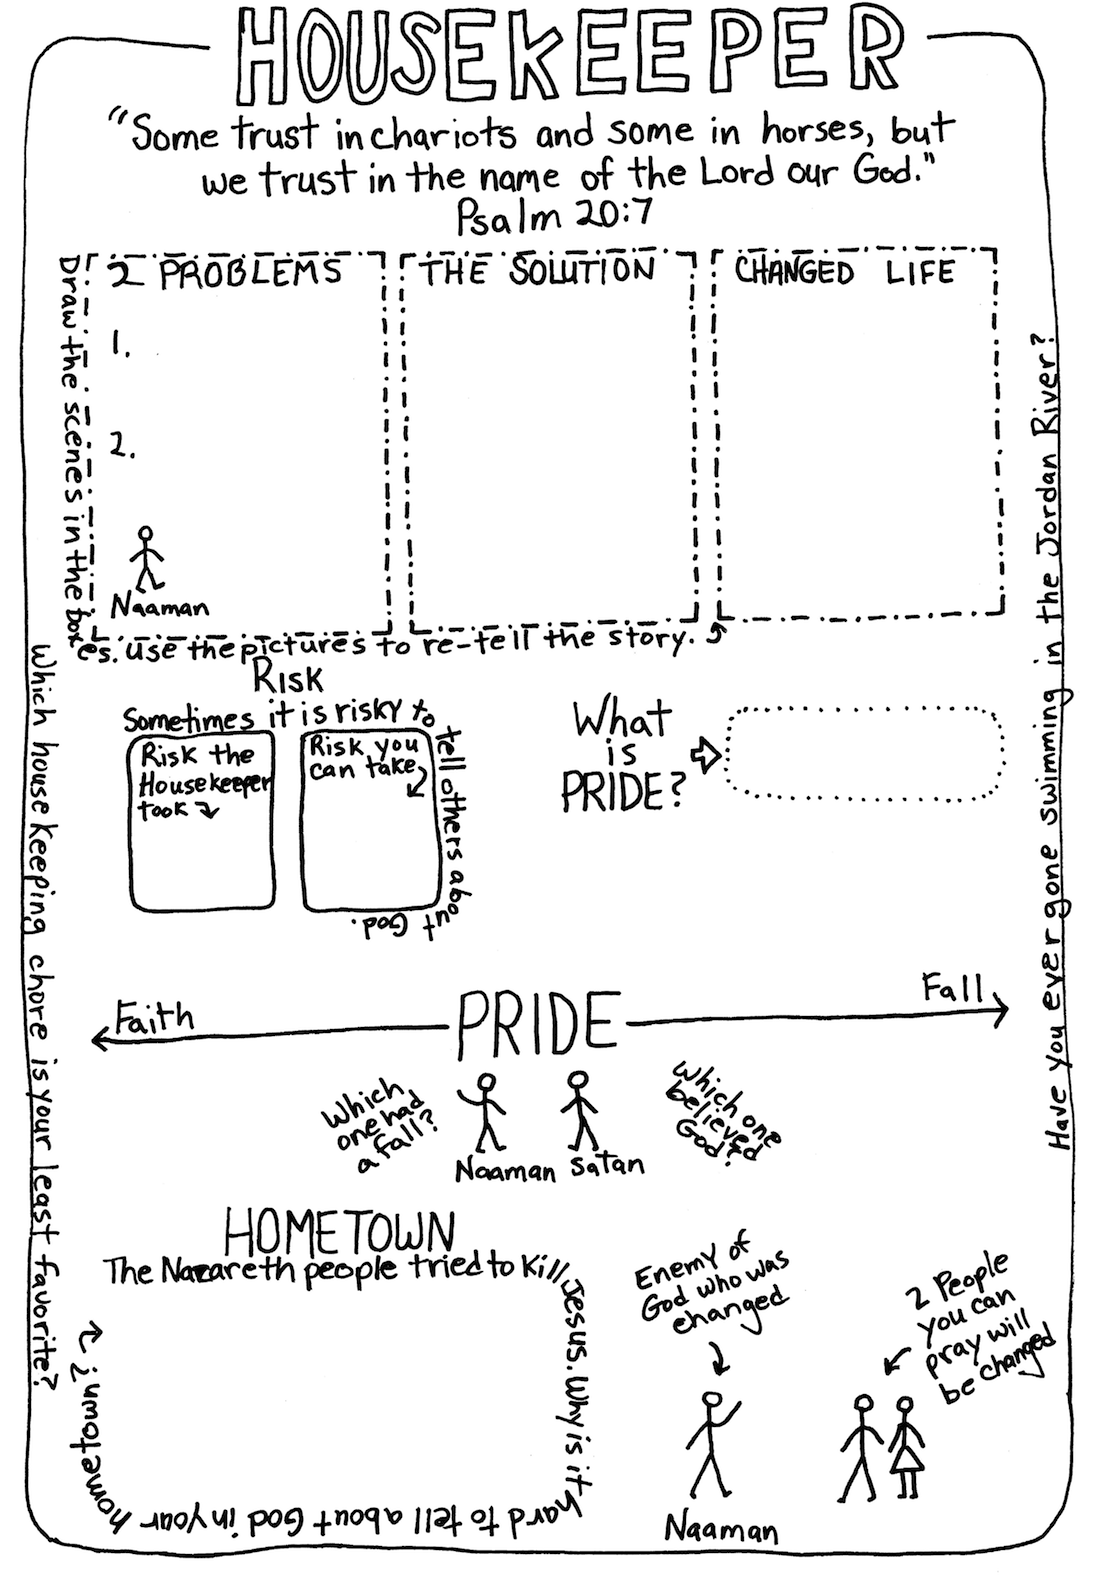 HOUSEKEEPER
"Some trust in chariots and some in horses, but
we trust in the name of the Lord our God."
Psalm 20:7
Draw the scenes in the boxes. Use the pictures to re-tell the story.
2 PROBLEMS
1.
2.
Naaman
THE SOLUTION
CHANGED LIFE
Have you ever gone swimming in the Jordan River?
Which housekeeping chore is your least favorite?
RISK
Sometimes it is risky to tell others about God.
Risk the
Housekeeper
took
Risk you
can take
What
is
PRIDE?
Faith
PRIDE
Fall
Which
one had
a fall?
Naaman
Satan
Which one
believed
God?
HOMETOWN
The Nazareth people tried to kill Jesus. Why is it hard to tell about God in your hometown?
Enemy of
God who was
changed
Naaman
2 People
you can
pray will
be changed